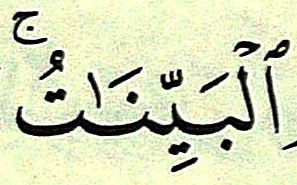 ٱلۡبَيِّنَٰتُۚ